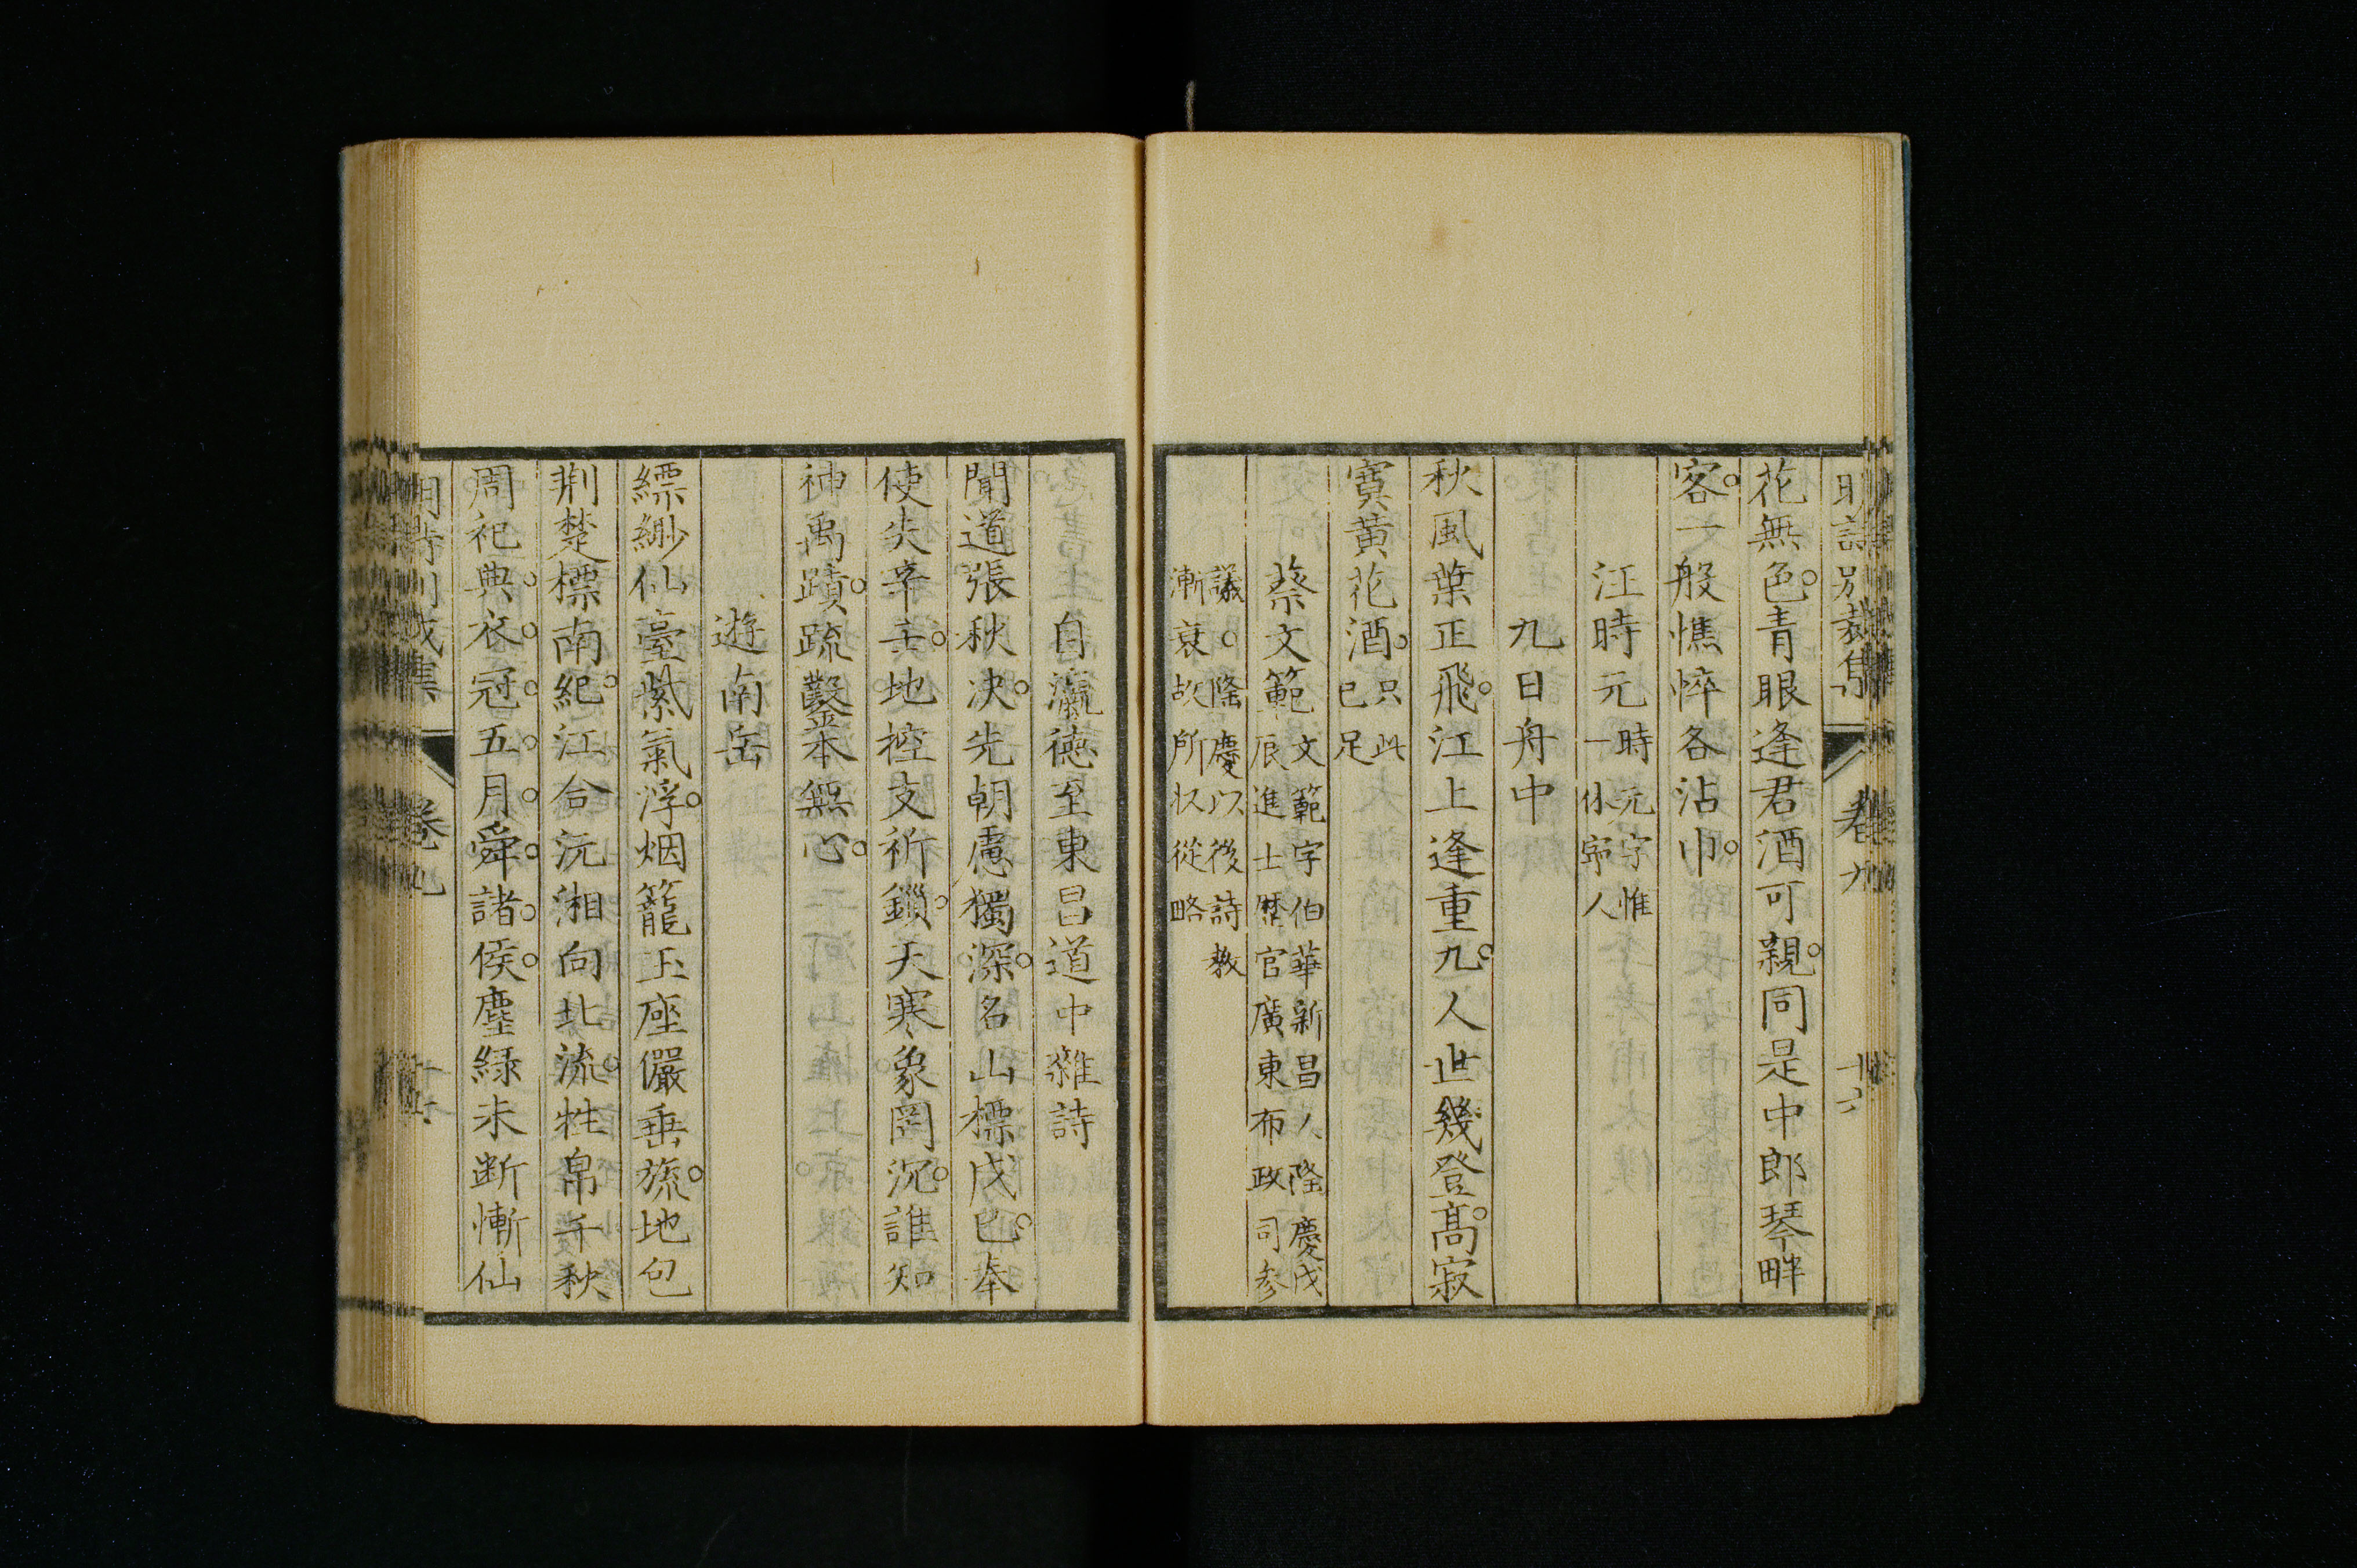 花無色青眼逢君酒可親同是中郎琴畔
客一般憔悴各沾巾
汪時元 時元字惟
一休寧人
九日舟中
秋風葉正飛江上逢重九人世幾登髙寂
寞黄花酒 只此
已足
蔡文範 文範字伯華新昌人隆慶戊
辰進士歴官廣東布政司參
議○隆慶以後詩教
漸衰故所收從略
自瀛德至東昌道中雜詩
聞道張秋决先朝慮獨深名山標戊巳奉
使失辛壬地控支祈鎖天寒象罔沉誰知
神禹蹟疏鑿本無心
遊南岳
縹緲仙臺紫氣浮烟籠玉座儼垂旒地包
荆楚標南紀江合沅湘向北流牲帛千秋
周祀典衣冠五月舜諸侯塵緣未断慚仙
卷九